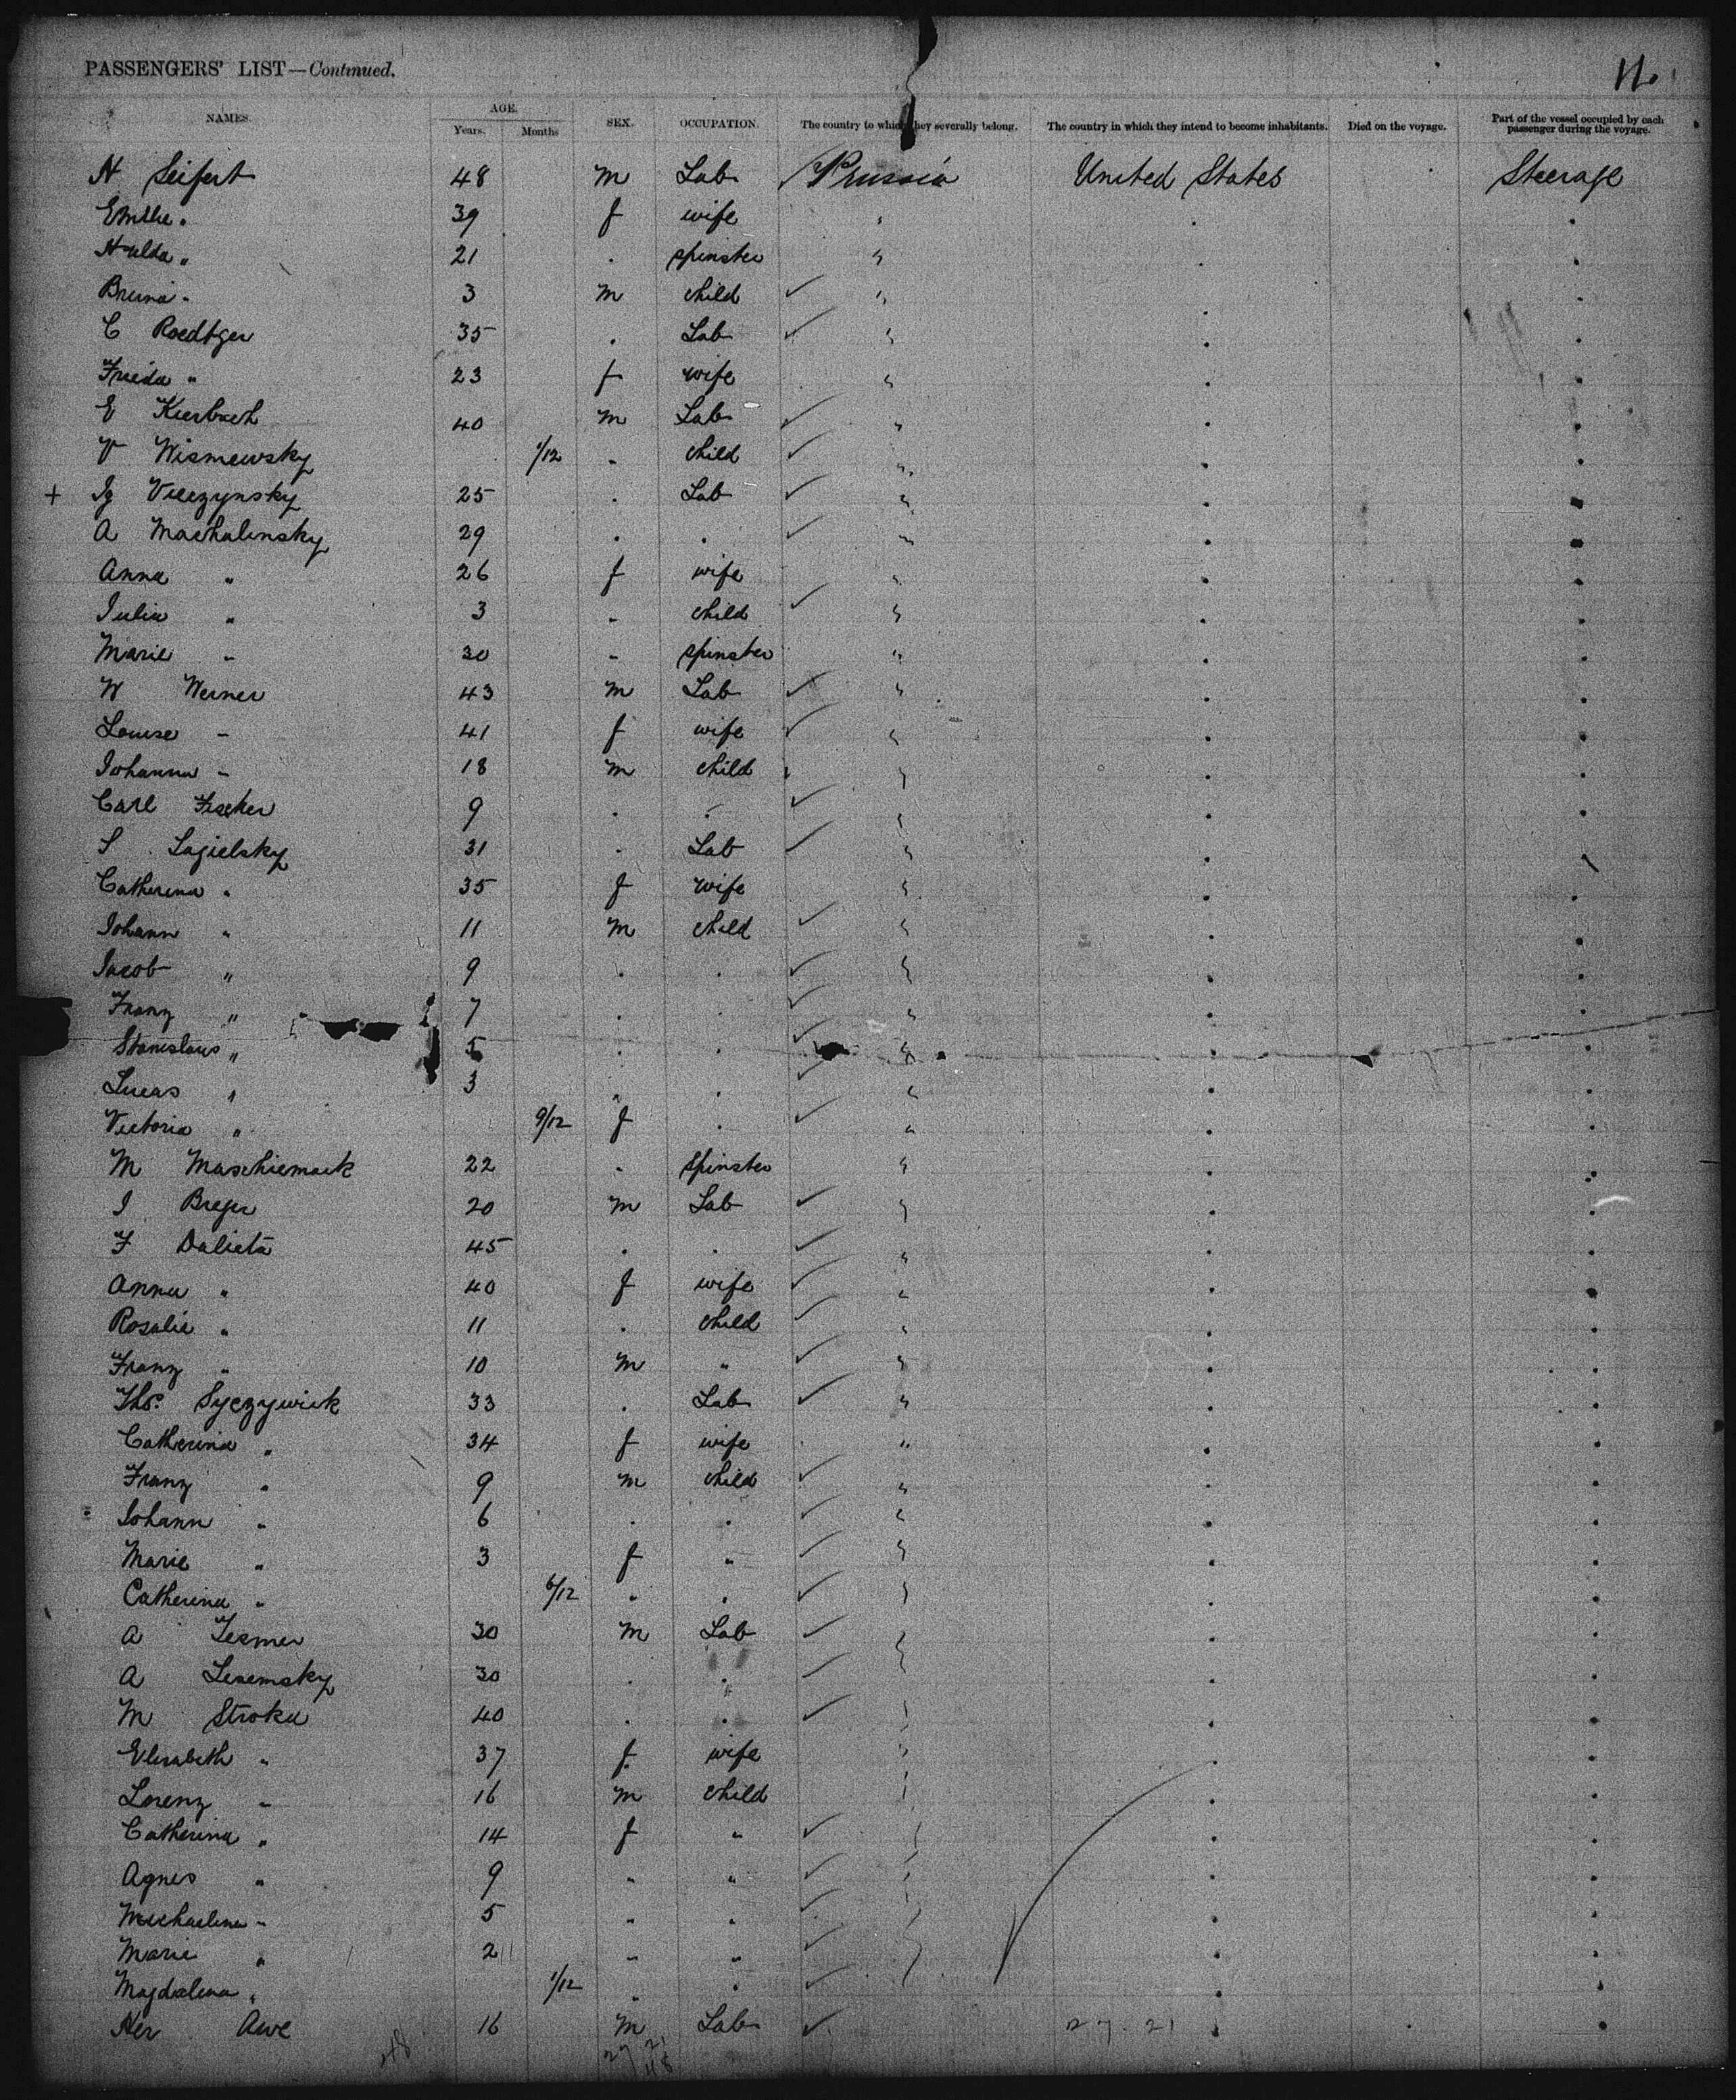 PASSENGERS' LIST—Continued. 11.
NAMES. AGE. Years. Months SEX. OCCUPATION. The country to which they severally belong. The country in which they intend to become inhabitants. Died on the voyage. Part of the vessel occupied by each passenger during the voyage.
H Seifert 48 m Lab Prussia United States Steerage
Emilie " 39 f wife "
Hulda " 21 . spinster "
Bruno " 3 m child "
C Roedtger 35 . Lab "
Frieda " 23 f wife "
E Kierbach 40 m Lab "
V Wismewsky 1/12 " child "
+ Ig Vilczynsky 25 . Lab "
A Machalinsky 29 . . "
Anna " 26 f wife "
Julia " 3 " child "
Marie " 30 " spinster "
W Werner 43 m Lab "
Louise " 41 f wife "
Johanna " 18 m child "
Carl Fischer 9 . . "
S Sagielsky 31 . Lab "
Catherina " 35 f wife "
Johann " 11 m child "
Jacob " 9 . . "
Franz " 7 . . "
Stanislaus " 5 . . "
Lucas " 3 " . "
Victoria " 9/12 f . "
M Maschiemack 22 " spinster "
I Breger 20 m Lab "
F Dalieta 45 . . "
Anna " 40 f wife "
Rosalie " 11 . child "
Franz " 10 m " "
Ths. Syczywick 33 . Lab "
Catherina " 34 f wife "
Franz " 9 m child "
Johann " 6 . . "
Marie " 3 f " "
Catherina " 6/12 " . "
A Tesmer 30 m Lab "
A Lesemsky 30 . . "
M Stroka 40 . . "
Elisabeth " 37 f wife "
Lorenz " 16 m child "
Catherina " 14 f " "
Agnes " 9 " " "
Michaelina " 5 " " "
Marie " 2 " " "
Magdalena " 1/12 " "
Her Awe 16 m Lab 27. 21
48 27 21
48